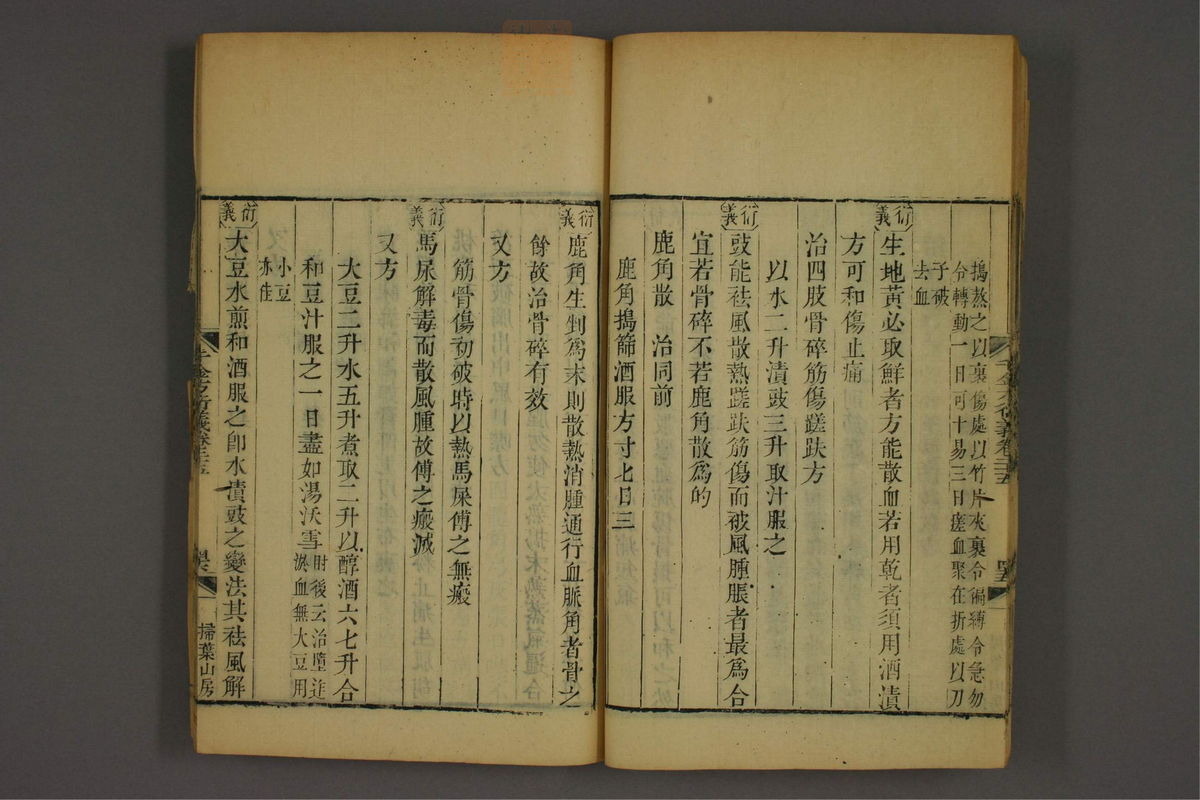 搗蒸之以裹傷處以竹片夾裹令徧縛令急勿
令轉動一日可十易三日瘥血聚在折處以刀
子破
去血
衍義
生地黃必取鮮者方能散血若用乾者須用酒漬
方可和傷止痛
治四肢骨碎筋傷蹉跌方
以水二升漬豉三升取汁服之
衍義
豉能祛風散熱蹉跌筋傷而被風腫脹者最爲合
宜若骨碎不若鹿角散爲的
鹿角散 治同前
鹿角搗篩酒服方寸匕日三
衍義
鹿角生剉爲末則散熱消腫通行血脈角者骨之
餘故治骨碎有效
又方
筋骨傷初破時以熱馬屎傅之無瘢
衍義
馬屎解毒而散風腫故傅之瘢滅
又方
大豆二升水五升煮取二升以醇酒六七升合
和豆汁服之一日盡如湯沃雪
肘後云治墮迮
瘀血無大豆用
小豆
亦佳
衍義
大豆水煎和酒服之即水漬豉之變法其祛風解
千金方衍義卷二十五
掃葉山房